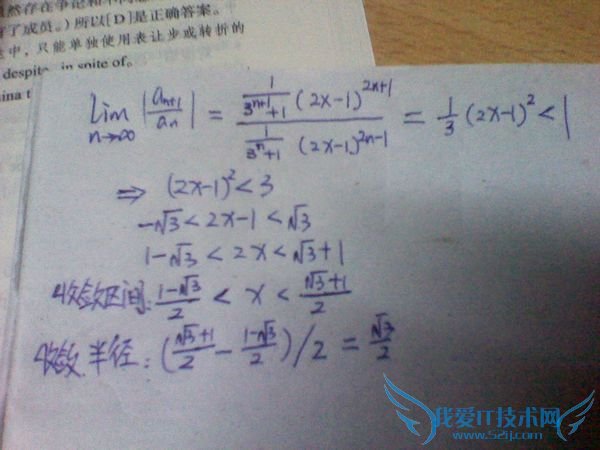 然存在争论和不同意
了成员。)所以[D]是正确答案。
中,只能单独使用表让步或转折的
despite, in spite of。
ina t
lim n→∞ |a_{n+1}/a_n| = (1/(3^{n+1}+1) (2x-1)^{2n+1}) / (1/(3^n+1) (2x-1)^{2n-1}) = 1/3 (2x-1)^2 < 1
⇒ (2x-1)^2 < 3
-√3 < 2x-1 < √3
1-√3 < 2x < √3+1
收敛区间: (1-√3)/2 < x < (√3+1)/2
收敛半径: ((√3+1)/2 - (1-√3)/2)/2 = √3/2
我爱IT技术网
www.52ij.com